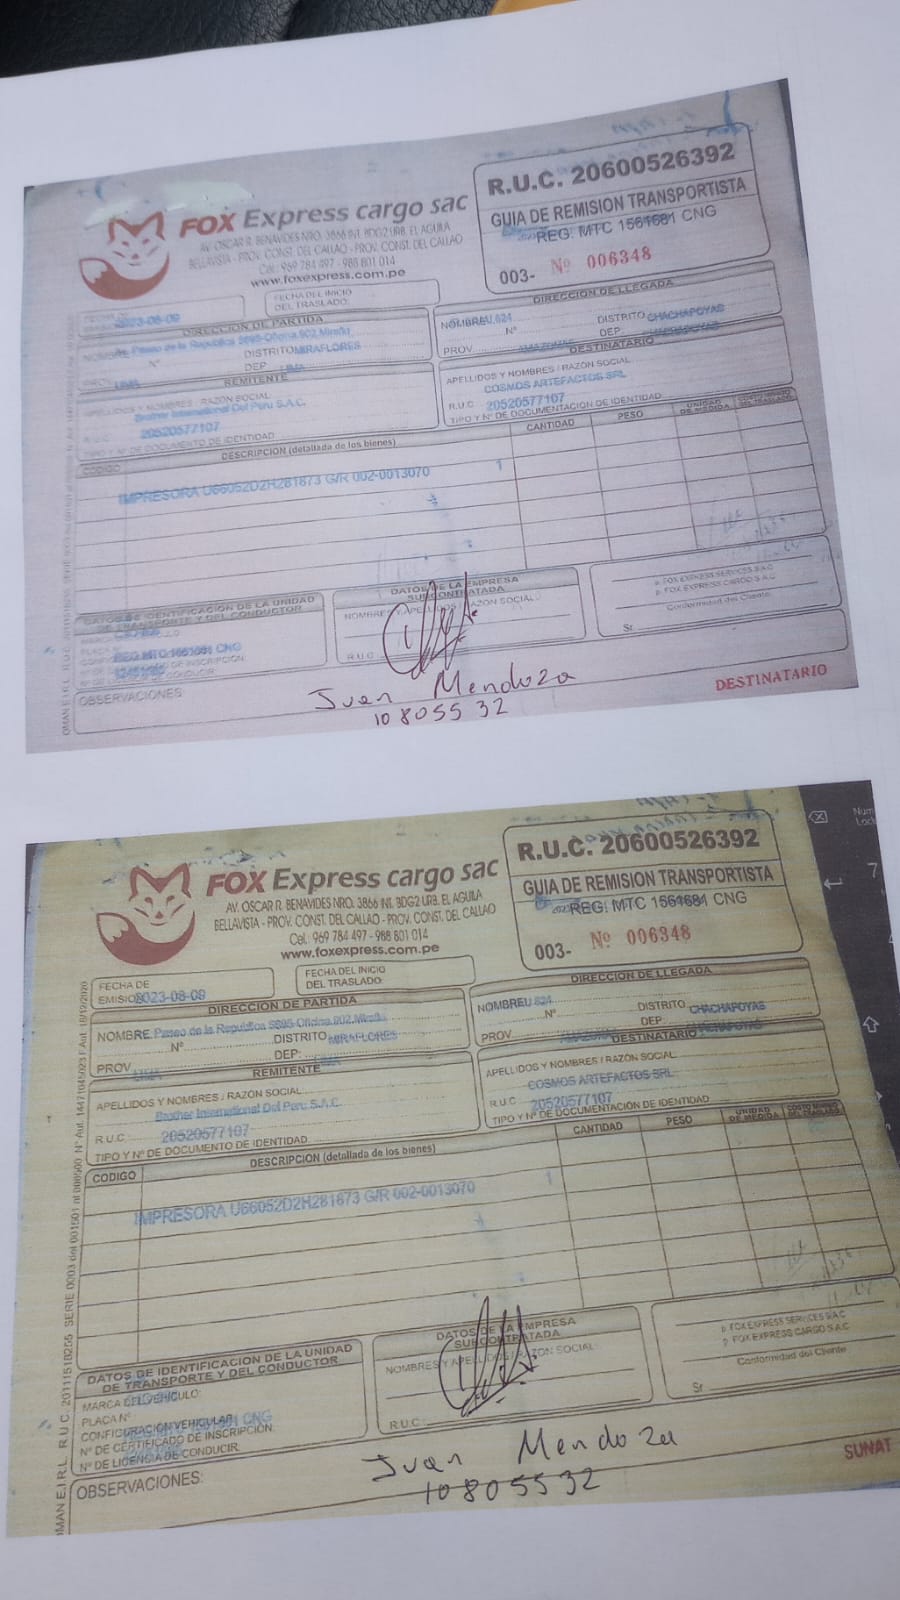 FOX Express cargo sac
AV. OSCAR R. BENAVIDES NRO. 3866 INT. BDG2 URB. EL AGUILA
BELLAVISTA - PROV. CONST. DEL CALLAO - PROV. CONST. DEL CALLAO
Cel.: 969 784 497 - 988 801 014
www.foxexpress.com.pe
R.U.C. 20600526392
GUIA DE REMISION TRANSPORTISTA
REG. MTC 1561681 CNG
003- Nº 006348
FECHA DEL INICIO
DEL TRASLADO:
2023-08-09
DIRECCION DE PARTIDA
Paseo de la Republica 5895-Oficina.902.Miraflo
Nº DISTRITO MIRAFLORES
DEP. LIMA
PROV. LIMA
DIRECCION DE LLEGADA
NOMBREU.624
Nº DISTRITO CHACHAPOYAS
DEP.
PROV. AMAZONAS
REMITENTE
APELLIDOS Y NOMBRES / RAZON SOCIAL
Brother International Del Peru S.A.C.
R.U.C. 20520577107
TIPO Y Nº DE DOCUMENTO DE IDENTIDAD
DESTINATARIO
APELLIDOS Y NOMBRES / RAZON SOCIAL
COSMOS ARTEFACTOS SRL
R.U.C 20520577107
TIPO Y Nº DE DOCUMENTACION DE IDENTIDAD
CODIGO DESCRIPCION (detallada de los bienes) CANTIDAD PESO UNIDAD DE MEDIDA
IMPRESORA U66052D2H281673 G/R 002-0013070 1
DATOS DE IDENTIFICACION DE LA UNIDAD
DE TRANSPORTE Y DEL CONDUCTOR
REG MTC 1561681 CNG
Nº DE LICENCIA DE CONDUCIR:
DATOS DE LA EMPRESA
SUBCONTRATADA
NOMBRES Y APELLIDOS / RAZON SOCIAL:
R.U.C.
p. FOX EXPRESS SERVICES S.A.C
p. FOX EXPRESS CARGO S.A.C
Conformidad del Cliente
Sr.
OBSERVACIONES:
Juan Mendoza
10805532
DESTINATARIO
FOX Express cargo sac
AV. OSCAR R. BENAVIDES NRO. 3866 INT. BDG2 URB. EL AGUILA
BELLAVISTA - PROV. CONST. DEL CALLAO - PROV. CONST. DEL CALLAO
Cel.: 969 784 497 - 988 801 014
www.foxexpress.com.pe
R.U.C. 20600526392
GUIA DE REMISION TRANSPORTISTA
REG. MTC 1561681 CNG
003- Nº 006348
FECHA DE
EMISION 2023-08-09
FECHA DEL INICIO
DEL TRASLADO:
DIRECCION DE PARTIDA
NOMBRE: Paseo de la Republica 5895-Oficina.902.Miraflo
Nº DISTRITO MIRAFLORES
DEP: LIMA
PROV LIMA
DIRECCION DE LLEGADA
NOMBREU.624
Nº DISTRITO CHACHAPOYAS
DEP.
PROV
REMITENTE
APELLIDOS Y NOMBRES / RAZON SOCIAL
Brother International Del Peru S.A.C.
R.U.C 20520577107
TIPO Y Nº DE DOCUMENTO DE IDENTIDAD
DESTINATARIO
APELLIDOS Y NOMBRES / RAZON SOCIAL
COSMOS ARTEFACTOS SRL
R.U.C 20520577107
TIPO Y Nº DE DOCUMENTACION DE IDENTIDAD
CODIGO DESCRIPCION (detallada de los bienes) CANTIDAD PESO UNIDAD DE MEDIDA
IMPRESORA U66052D2H281673 G/R 002-0013070 1
DATOS DE IDENTIFICACION DE LA UNIDAD
DE TRANSPORTE Y DEL CONDUCTOR
MARCA DEL VEHICULO:
PLACA Nº
CONFIGURACION VEHICULAR
Nº DE CERTIFICADO DE INSCRIPCION
Nº DE LICENCIA DE CONDUCIR
DATOS DE LA EMPRESA
SUBCONTRATADA
NOMBRES Y APELLIDOS / RAZON SOCIAL:
R.U.C.
p. FOX EXPRESS SERVICES S.A.C
p. FOX EXPRESS CARGO S.A.C
Conformidad del Cliente
Sr.
OBSERVACIONES:
Juan Mendoza
10805532
SUNAT
Num
Lock
7